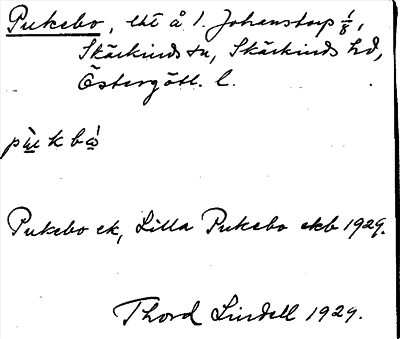 Pukebo, lht å 1. Johanstorp 1/8,
Skärkinds sn, Skärkinds hd,
Östergötl. l.
Pukebo ek, Lilla Pukebo ekb 1929.
Thord Lindell 1929.